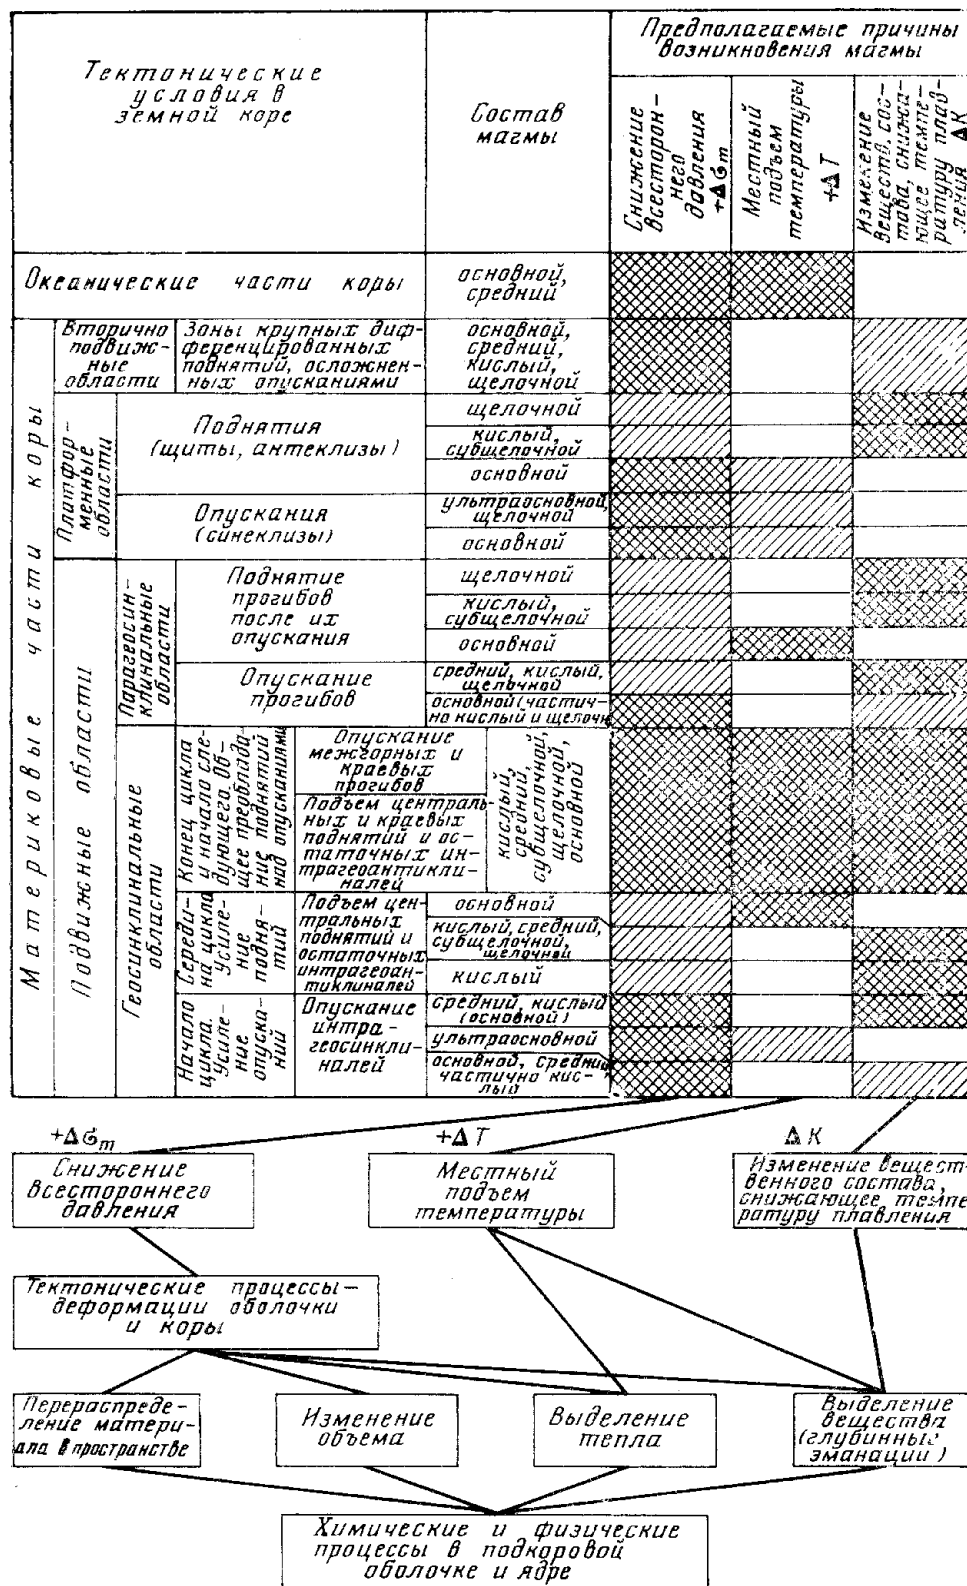 Тектонические
условия в
земной коре
Состав
магмы
Предполагаемые причины
возникновения магмы
Снижение
всесторон-
него
давления
+Δσm
Местный
подъем
температуры
+ΔT
Изменение
веществ. сос-
тава, снижа-
ющее темпе-
ратуру плав-
ления ΔK
Океанические части коры
основной,
средний
Материковые части коры
Вторично
подвиж-
ные
области
Зоны крупных диф-
ференцированных
поднятий, осложнен-
ных опусканиями
основной,
средний,
кислый,
щелочной
Платфор-
менные
области
Поднятия
(щиты, антеклизы)
щелочной
кислый,
субщелочной
основной
Опускания
(синеклизы)
ультраосновной,
щелочной
основной
Подвижные области
Парагеосин-
клинальные
области
Поднятие
прогибов
после их
опускания
щелочной
кислый,
субщелочной
основной
Опускание
прогибов
средний, кислый,
щелочной
основной (частич-
но кислый и щелочн
Геосинклинальные
области
Конец цикла
и начало сле-
дующего. Об-
щее преоблада-
ние поднятий
над опусканиями
Опускание
межгорных и
краевых
прогибов
Подъем централь-
ных и краевых
поднятий и ос-
таточных ин-
трагеоантикли-
налей
кислый,
средний,
субщелочной,
щелочной,
основной
Середи-
на цикла
Усиле-
ние
подня-
тий
Подъем цен-
тральных
поднятий и
остаточных
интрагеоан-
тиклиналей
основной
кислый, средний,
субщелочной,
щелочной
кислый
Начало
цикла.
Усиле-
ние
опуска-
ний
Опускание
интра-
геосинкли-
налей
средний, кислый
(основной)
ультраосновной
основной, средний,
частично кис-
лый
+Δσm
+ΔT
ΔK
Снижение
всестороннего
давления
Местный
подъем
температуры
Изменение вещест-
венного состава,
снижающее темпе-
ратуру плавления
Тектонические процессы —
деформации оболочки
и коры
Перераспреде-
ление матери-
ала в пространстве
Изменение
объема
Выделение
тепла
Выделение
вещества
(глубинные
эманации)
Химические и физические
процессы в подкоровой
оболочке и ядре